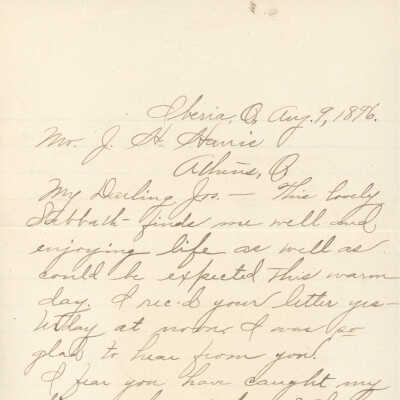 Iberia, O, Aug. 9, 1896.
Mr. J. H. Harric
Athens, O
My Darling Jos. — This lovely
Sabbath finds me well and
enjoying life as well as
could be expected this warm
day. I rec-d your letter yes-
terday at noon. I was so
glad to hear from you.
I fear you have caught my